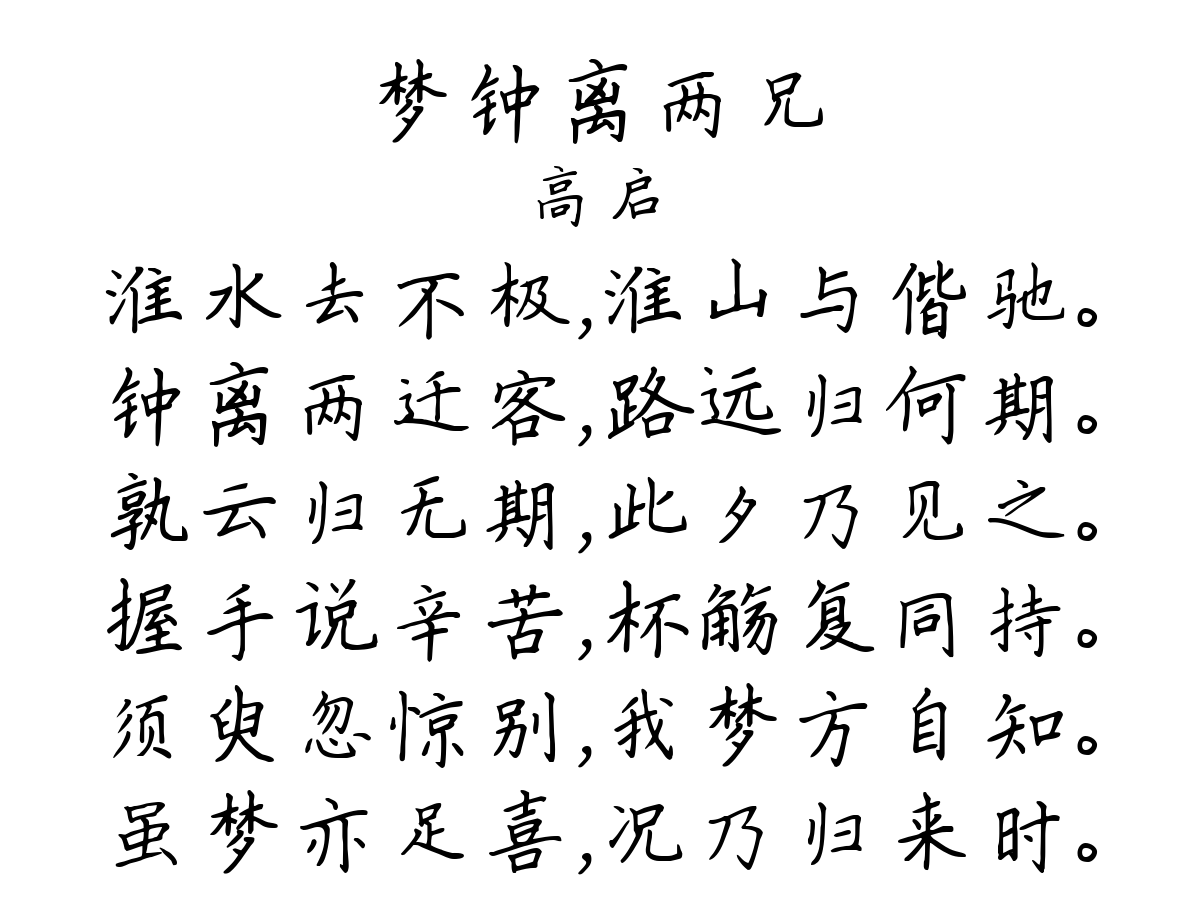 梦钟离两兄
高启
淮水去不极,淮山与偕驰。
钟离两迁客,路远归何期。
孰云归无期,此夕乃见之。
握手说辛苦,杯觞复同持。
须臾忽惊别,我梦方自知。
虽梦亦足喜,况乃归来时。